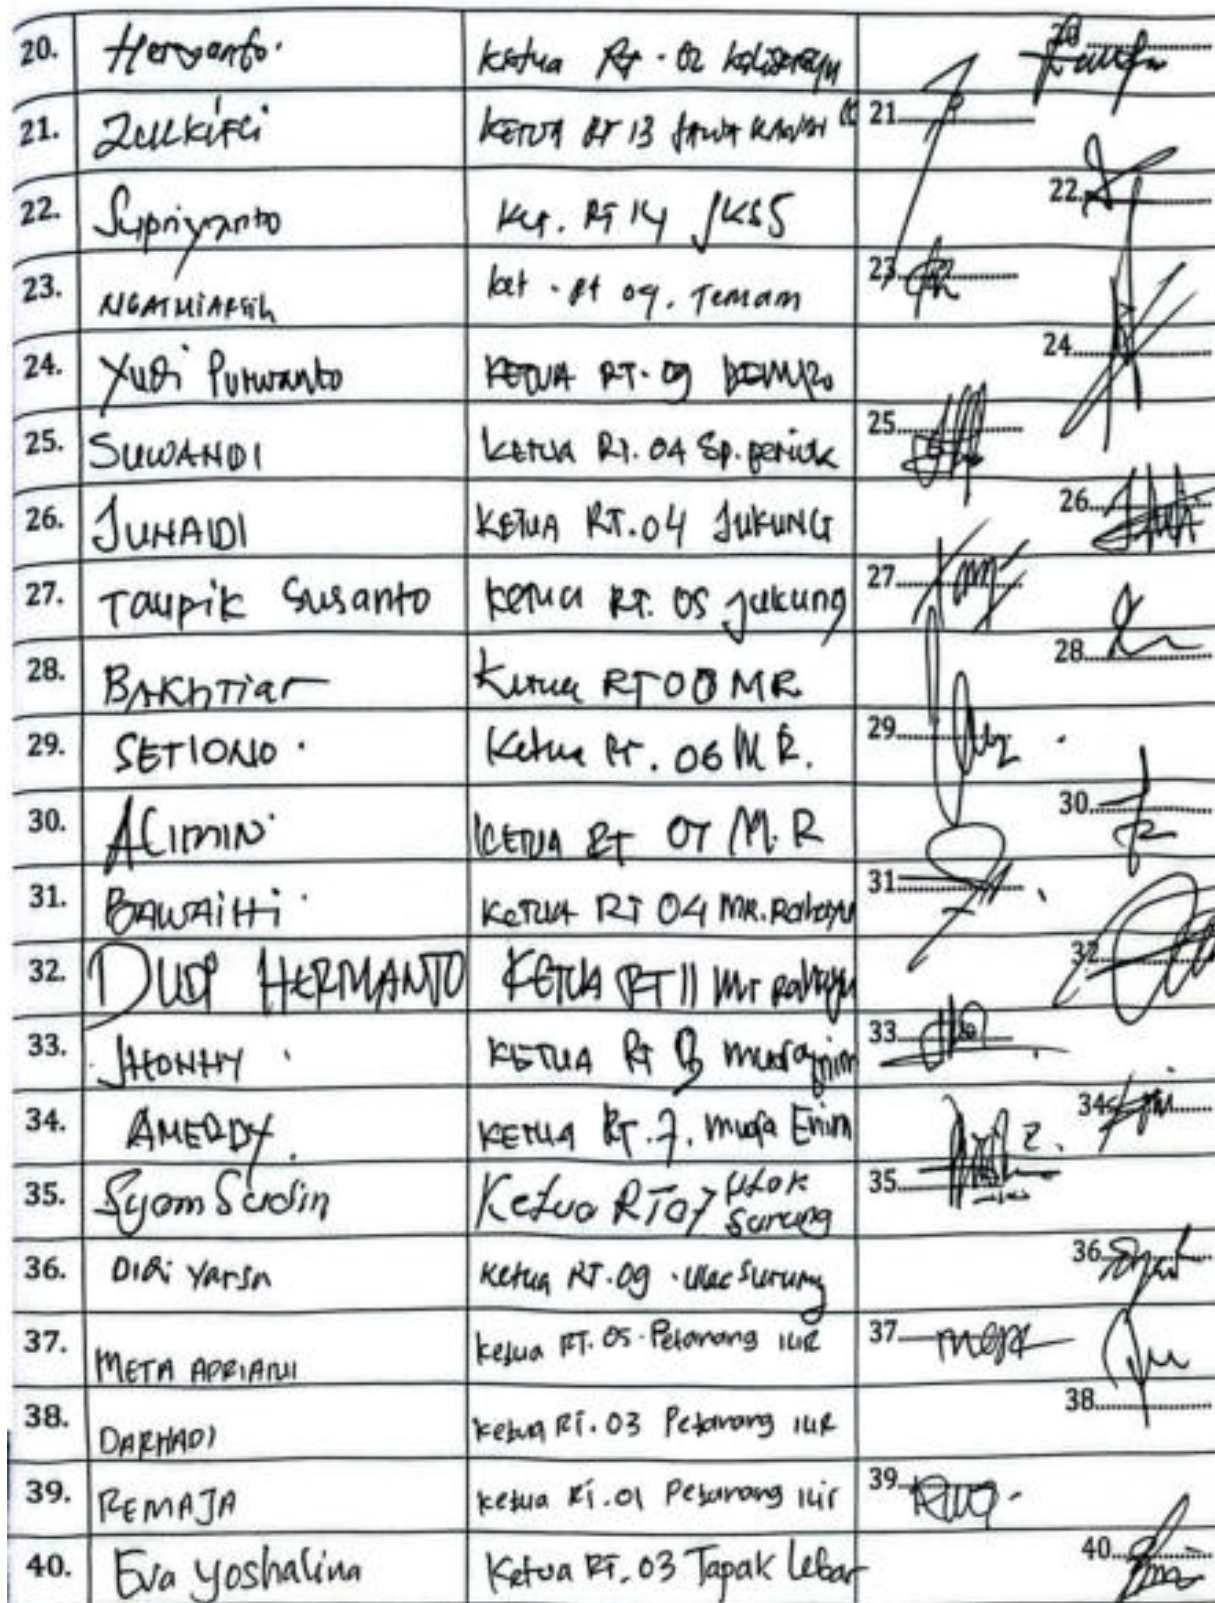 20. Heryanto. Ketua Rt. 02 20
21. Zulkifli KETUA RT 13 JAWA KANAN 21
22. Supriyanto Ket. RT 14 JKSS 22
23. NGATMIARSIH ket. Rt 09. Temam 23
24. Yudi Purwanto KETUA RT. 09 DEMPO 24
25. SUWANDI KETUA RT. 04 Sp. periuk 25
26. JUNAIDI KETUA RT. 04 JUKUNG 26
27. Taupik Susanto Ketua RT. 05 jukung 27
28. BAKhTiar Ketua RT 08 MR 28
29. SETIONO. Ketua Rt. 06 M R. 29
30. ALIMIN KETUA RT 07 M. R 30
31. BAWAIHI. KETUA RT 04 MR. Rahayu 31
32. DUDI HERMANTO KETUA RT 11 Mr Rahayu 32
33. JHONNY. KETUA Rt 33
34. AMERDY. KETUA Rt. 7. muara Enim 34
35. SyamSudin Ketua RT 07 Ulak Surung 35
36. DIDI Yarsa Ketua RT. 09 . Ulac Surung 36
37. META APRIANI Ketua RT. 05. Petanang ILIR 37
38. DARHADI Ketua RT. 03 Petanang ILIR 38
39. REMAJA Ketua RT. 01 Petanang Ilir 39
40. Eva yoshalina Ketua RT. 03 Tapak Lebar 40